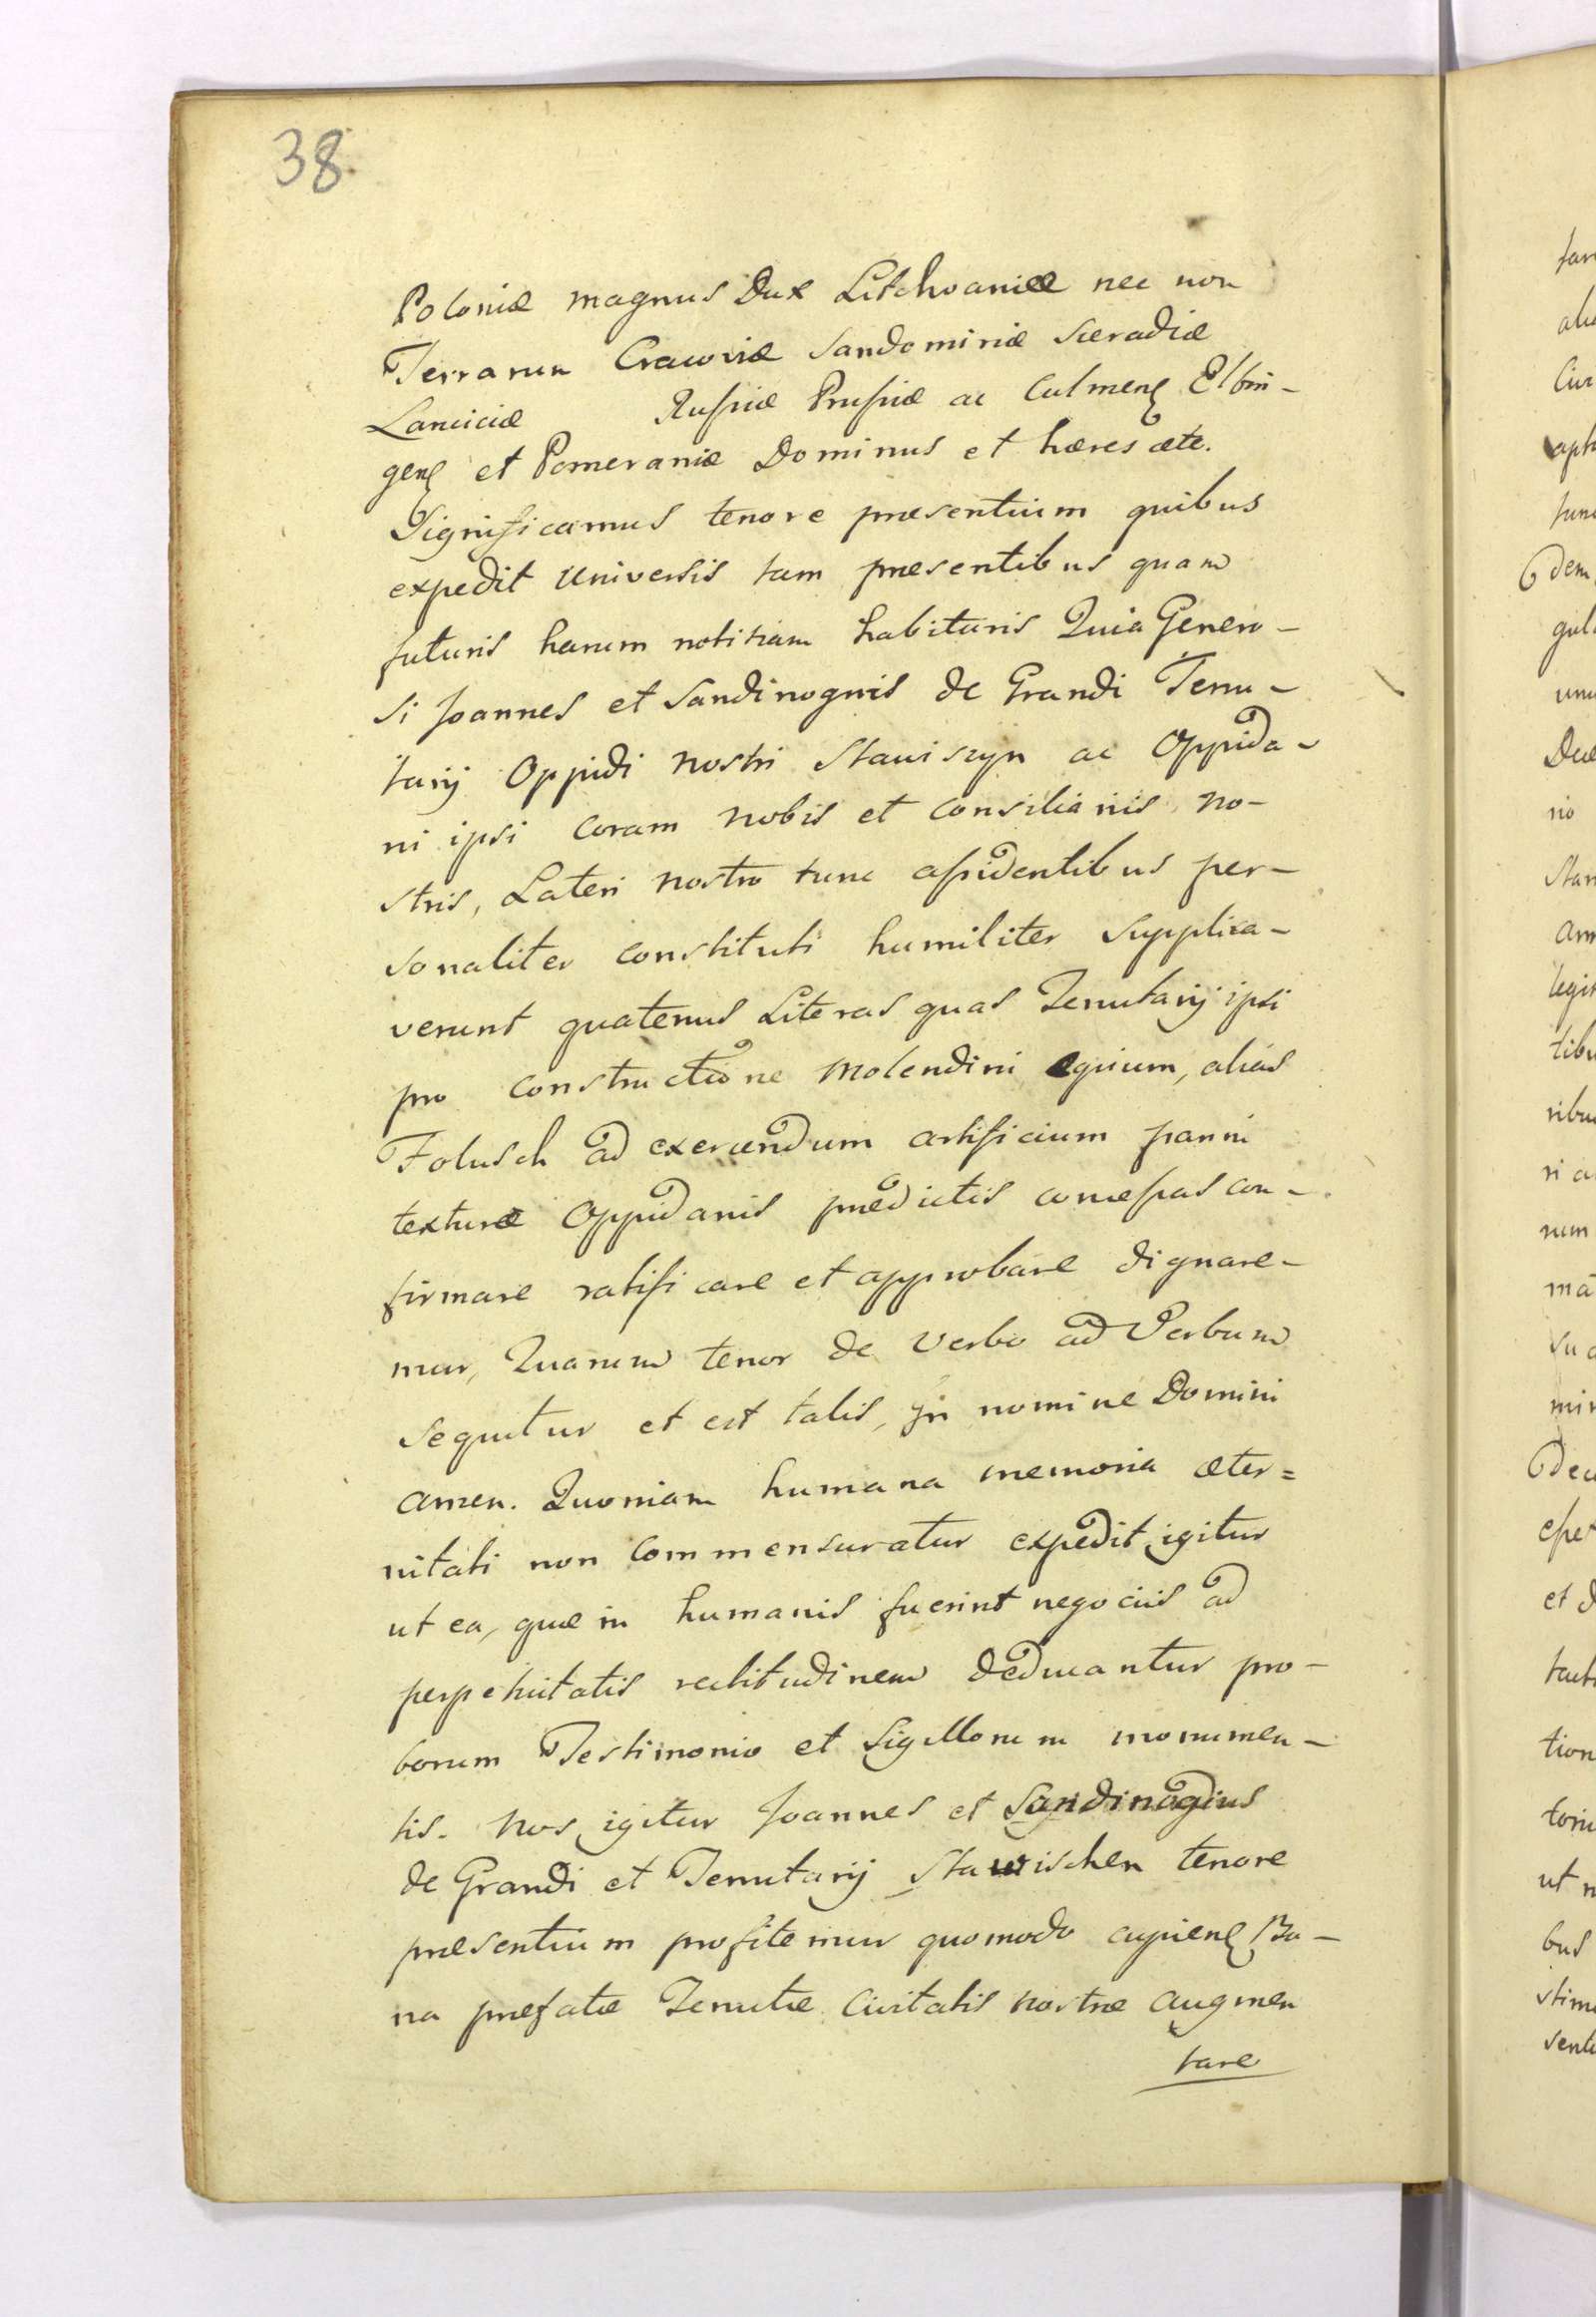 38
Poloniæ magnus Dux Litchvaniæ nec non
Terrarum Cracoviæ Sandomiriæ Sieradiæ
Lanciciæ Russiæ Prussiæ ac Culmens Elbin-
gens et Pomeraniæ Dominus et hæres æte.
Significamus tenore præsentium quibus
expedit Universis tam præsentibus quam
futuris harum notitiam habituris Quia Genero-
si Joannes et Sandinognis de Grandi Tenu-
tarij Oppidi nostri Stawiszyn ac Oppida-
ni ipsi coram nobis et consiliariis no-
stris, Lateri nostro tunc assidentibus per-
sonaliter constituti humiliter supplica-
verunt quatenus Literas quas Tenutarij ipsi
pro constructione Molendini equium, alias
Folusch ad exercendum artificium panni
texturæ Oppidanis prædictis concessas con-
firmare ratificare et approbare dignare-
mur, Quarum tenor de verbo ad Verbum
sequitur et est talis, In nomine Domini
amen. Quoniam humana memoria æter=
nitati non commensuratur expedit igitur
ut ea, quæ in humanis fuerint negociis ad
perpetuitatis rectitudinem deducantur pro-
borum Testimonio et Sigillorum monumen-
tis. Nos igitur Joannes et Sandinogius
de Grandi et Tenutarij Stawischen tenore
præsentium profitemur quomodo cupiens Bo-
na præfatæ Tenutæ Civitatis nostræ augmen
tare